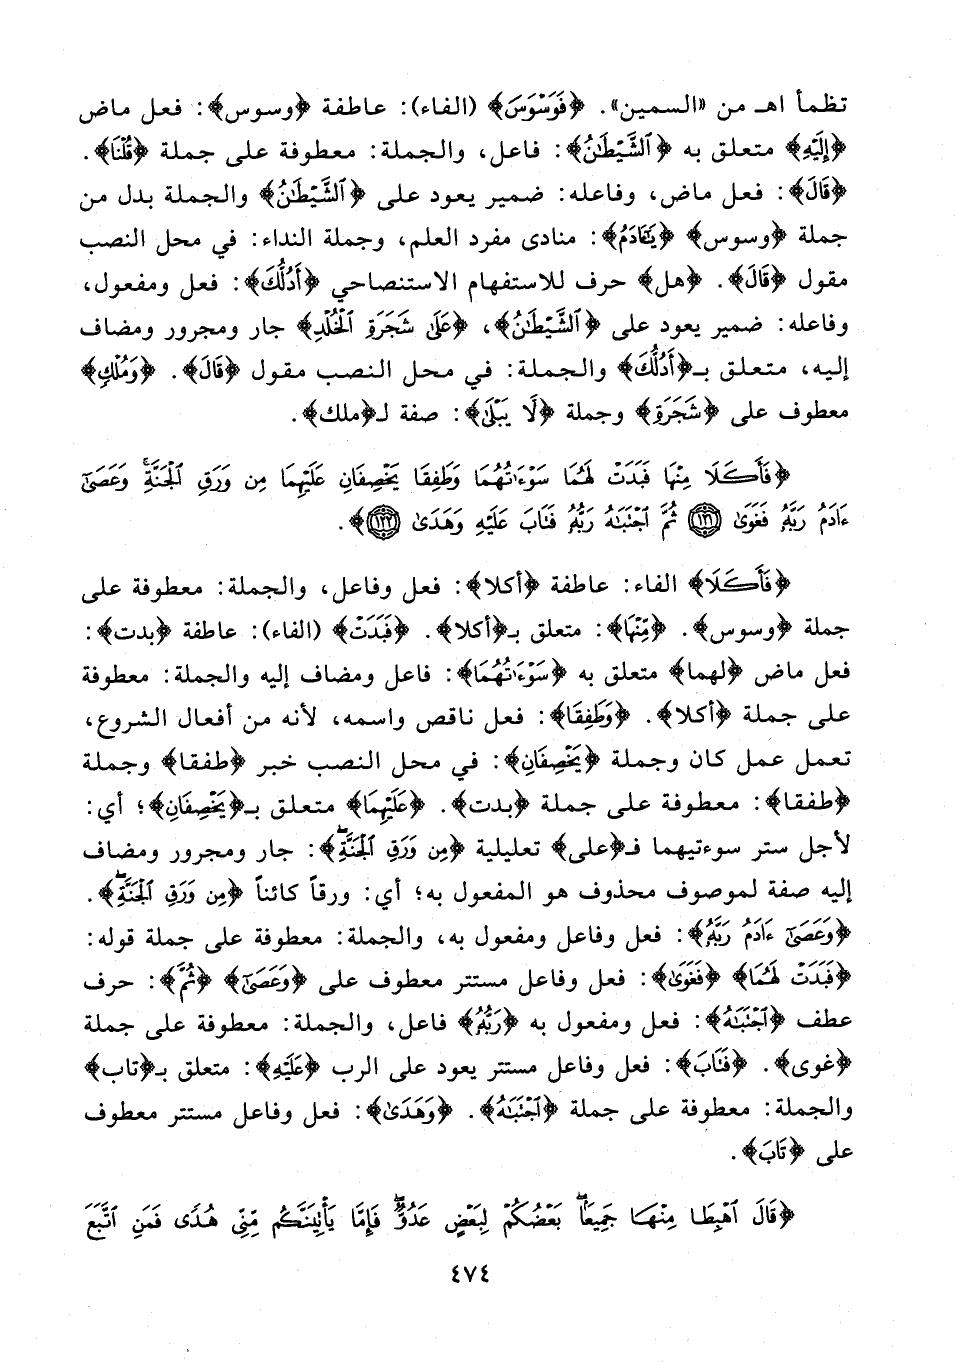 تظمأ اهـ من «السمين». ﴿فَوَسْوَسَ﴾ (الفاء): عاطفة ﴿وسوس﴾: فعل ماض
﴿إِلَيْهِ﴾ متعلق به ﴿ٱلشَّيْطَٰنُ﴾: فاعل، والجملة: معطوفة على جملة ﴿قُلْنَا﴾.
﴿قَالَ﴾: فعل ماض، وفاعله: ضمير يعود على ﴿ٱلشَّيْطَٰنُ﴾ والجملة بدل من
جملة ﴿وسوس﴾ ﴿يَٰٓـَٔادَمُ﴾: منادى مفرد العلم، وجملة النداء: في محل النصب
مقول ﴿قَالَ﴾. ﴿هل﴾ حرف للاستفهام الاستنصاحي ﴿أَدُلُّكَ﴾: فعل ومفعول،
وفاعله: ضمير يعود على ﴿ٱلشَّيْطَٰنُ﴾، ﴿عَلَىٰ شَجَرَةِ ٱلْخُلْدِ﴾ جار ومجرور ومضاف
إليه، متعلق بـ﴿أَدُلُّكَ﴾ والجملة: في محل النصب مقول ﴿قَالَ﴾. ﴿وَمُلْكٍ﴾
معطوف على ﴿شَجَرَةِ﴾ وجملة ﴿لَّا يَبْلَىٰ﴾: صفة لـ﴿ملك﴾.
﴿فَأَكَلَا مِنْهَا فَبَدَتْ لَهُمَا سَوْءَٰتُهُمَا وَطَفِقَا يَخْصِفَانِ عَلَيْهِمَا مِن وَرَقِ ٱلْجَنَّةِ ۚ وَعَصَىٰٓ
ءَادَمُ رَبَّهُۥ فَغَوَىٰ ﴿١٢١﴾ ثُمَّ ٱجْتَبَٰهُ رَبُّهُۥ فَتَابَ عَلَيْهِ وَهَدَىٰ ﴿١٢٢﴾﴾.
﴿فَأَكَلَا﴾ الفاء: عاطفة ﴿أكلا﴾: فعل وفاعل، والجملة: معطوفة على
جملة ﴿وسوس﴾. ﴿مِنْهَا﴾: متعلق بـ﴿أكلا﴾. ﴿فَبَدَتْ﴾ (الفاء): عاطفة ﴿بدت﴾:
فعل ماض ﴿لهما﴾ متعلق به ﴿سَوْءَٰتُهُمَا﴾: فاعل ومضاف إليه والجملة: معطوفة
على جملة ﴿أكلا﴾. ﴿وَطَفِقَا﴾: فعل ناقص واسمه، لأنه من أفعال الشروع،
تعمل عمل كان وجملة ﴿يَخْصِفَانِ﴾: في محل النصب خبر ﴿طفقا﴾ وجملة
﴿طفقا﴾: معطوفة على جملة ﴿بدت﴾. ﴿عَلَيْهِمَا﴾ متعلق بـ﴿يَخْصِفَانِ﴾؛ أي:
لأجل ستر سوءتيهما فـ﴿على﴾ تعليلية ﴿مِن وَرَقِ ٱلْجَنَّةِ ۖ﴾: جار ومجرور ومضاف
إليه صفة لموصوف محذوف هو المفعول به؛ أي: ورقاً كائناً ﴿مِن وَرَقِ ٱلْجَنَّةِ ۖ﴾.
﴿وَعَصَىٰٓ ءَادَمُ رَبَّهُۥ﴾: فعل وفاعل ومفعول به، والجملة: معطوفة على جملة قوله:
﴿فَبَدَتْ لَهُمَا﴾ ﴿فَغَوَىٰ﴾: فعل وفاعل مستتر معطوف على ﴿وَعَصَىٰٓ﴾ ﴿ثُمَّ﴾: حرف
عطف ﴿ٱجْتَبَٰهُ﴾: فعل ومفعول به ﴿رَبُّهُۥ﴾ فاعل، والجملة: معطوفة على جملة
﴿غوى﴾. ﴿فَتَابَ﴾: فعل وفاعل مستتر يعود على الرب ﴿عَلَيْهِ﴾: متعلق بـ﴿تاب﴾
والجملة: معطوفة على جملة ﴿ٱجْتَبَٰهُ﴾. ﴿وَهَدَىٰ﴾: فعل وفاعل مستتر معطوف
على ﴿تَابَ﴾.
﴿قَالَ ٱهْبِطَا مِنْهَا جَمِيعًۢا ۖ بَعْضُكُمْ لِبَعْضٍ عَدُوٌّ ۖ فَإِمَّا يَأْتِيَنَّكُم مِّنِّى هُدًى فَمَنِ ٱتَّبَعَ
٤٧٤